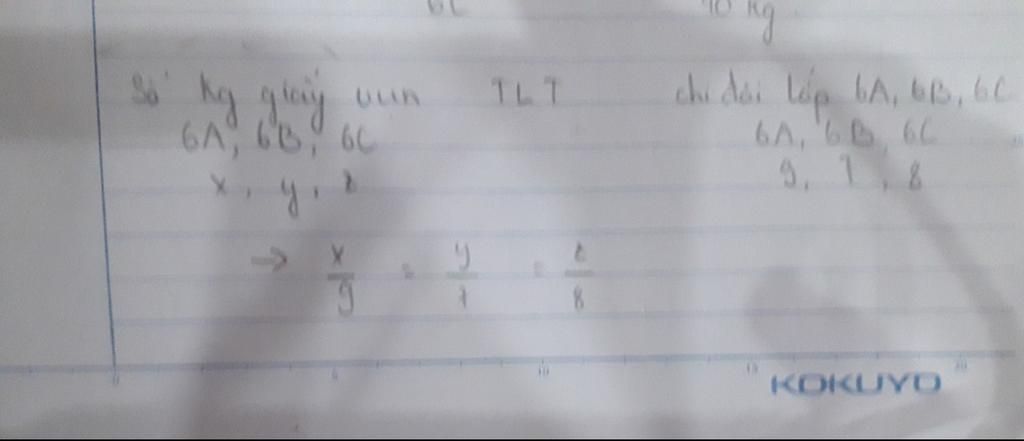 6C 90 kg
Số kg giấy vụn TLT chi đội lớp 6A, 6B, 6C
6A, 6B, 6C 6A, 6B, 6C
x, y, z 9, 7, 8
→ x/9 = y/7 = z/8
0 5 10 15 20
KOKUYO